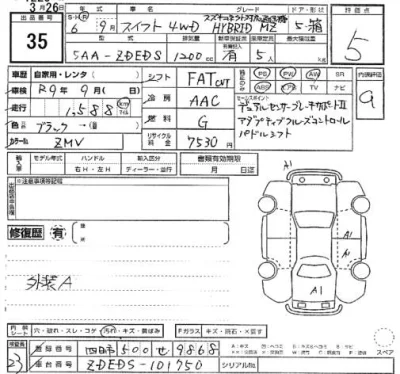 3月26日
出品番号
35
年式 車名 グレード ドア・形状 評価点
R 6 9月 スイフト 4WD HYBRID MZ 5・箱 5
型式 排気量 新車保証書 乗車定員 最大積載量
5AA-ZDEDS 1200cc 有 5人
車歴 自家用・レンタ( ) シフト FAT CVT PS PW AW SR 内装評価
車検 R9年 9月( 日) 冷房 AAC ABS TV ナビ a
走行 1,588 km マイル 燃料 G セールスポイント
デュアルセンサーブレーキサポートⅡ
アダプティブクルーズコントロール
パドルシフト
色 ブラック→( )
カラーNo. ZMV リサイクル料金 7530円
輸入車 モデル年式 ハンドル 輸入区分 書類有効期限
右H・左H ディーラー・並行 月 日迄
※注意事項等記載
A1
A1
A1
修復歴 有( )
外装A
内装シート 穴・破れ・スレ・コゲ・汚れ・キズ・黄ばみ Fガラス キズ・飛石・X直す
スペア
23 登録番号 四日市 500 せ 9868
車台番号 ZDEDS-101750 シリアルNo.